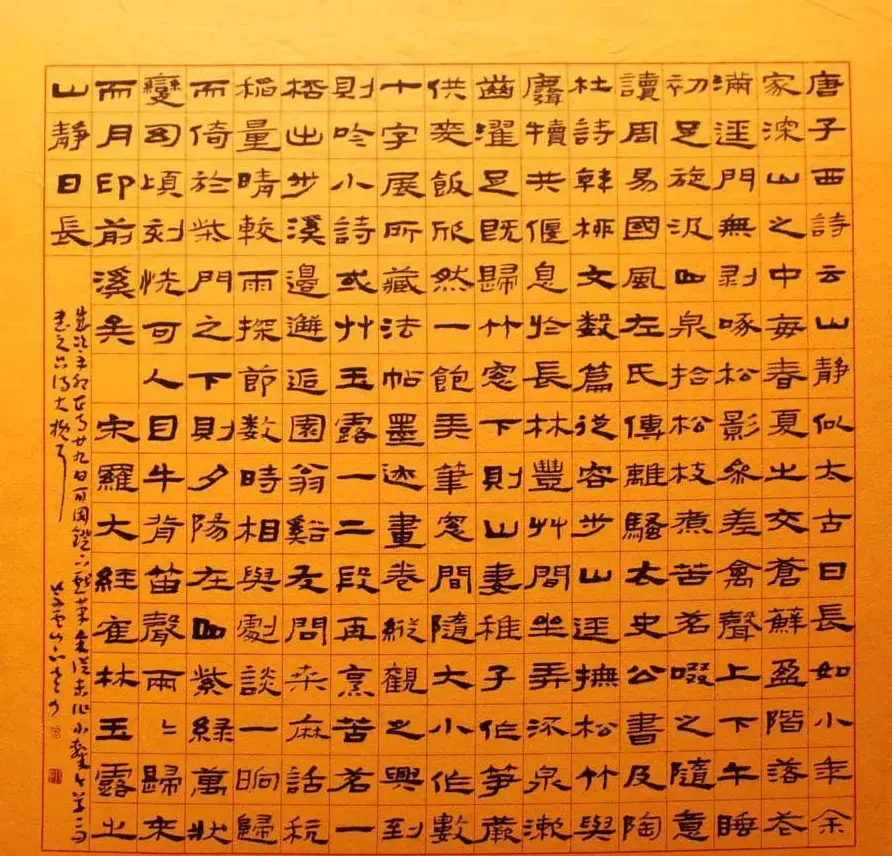 唐子西詩云山靜似太古日長如小年余
家深山之中每春夏之交蒼蘚盈階落花
滿逕門無剥啄松影參差禽聲上下午睡
初足旋汲山泉拾松枝煮苦茗啜之隨意
讀周易國風左氏傳離騷太史公書及陶
杜詩韓栁文数篇從容步山逕撫松竹與
麛犢共偃息於長林豐艸間坐弄流泉漱
齒濯足既歸竹窓下則山妻稚子作笋蕨
供麥飯欣然一飽弄筆窓間隨大小作數
十字展所藏法帖墨迹畫卷縱觀之興到
則吟小詩或艸玉露一二段再烹苦茗一
桮出步溪邊邂逅園翁谿友問桒麻話秔
稻量晴較雨探節数時相與劇談一晌歸
而倚於柴門之下則夕陽在山紫緑萬狀
變幻頃刻恍可人目牛背笛聲兩〻歸來
而月印前溪矣 宋羅大經崔林玉露之
山靜日長
歲次辛卯正月廿九日